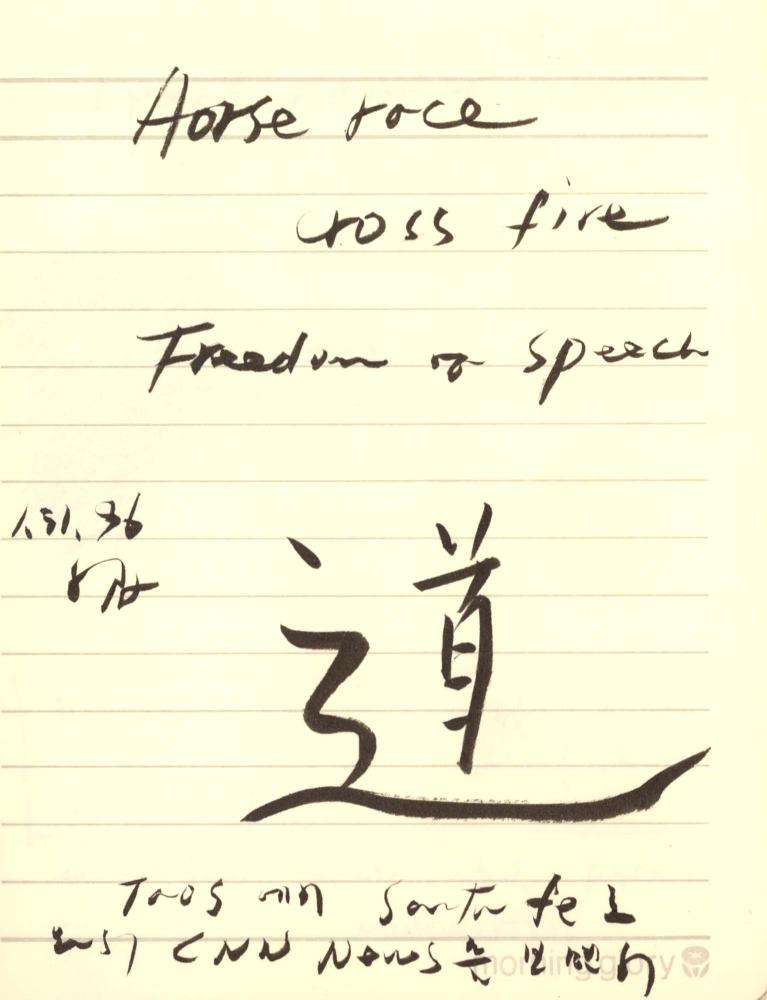 Horse race
cross fire
Freedom of speech
1.31.96
道
Taos에서 Santa fe로
CNN News를 보면서
morning glory